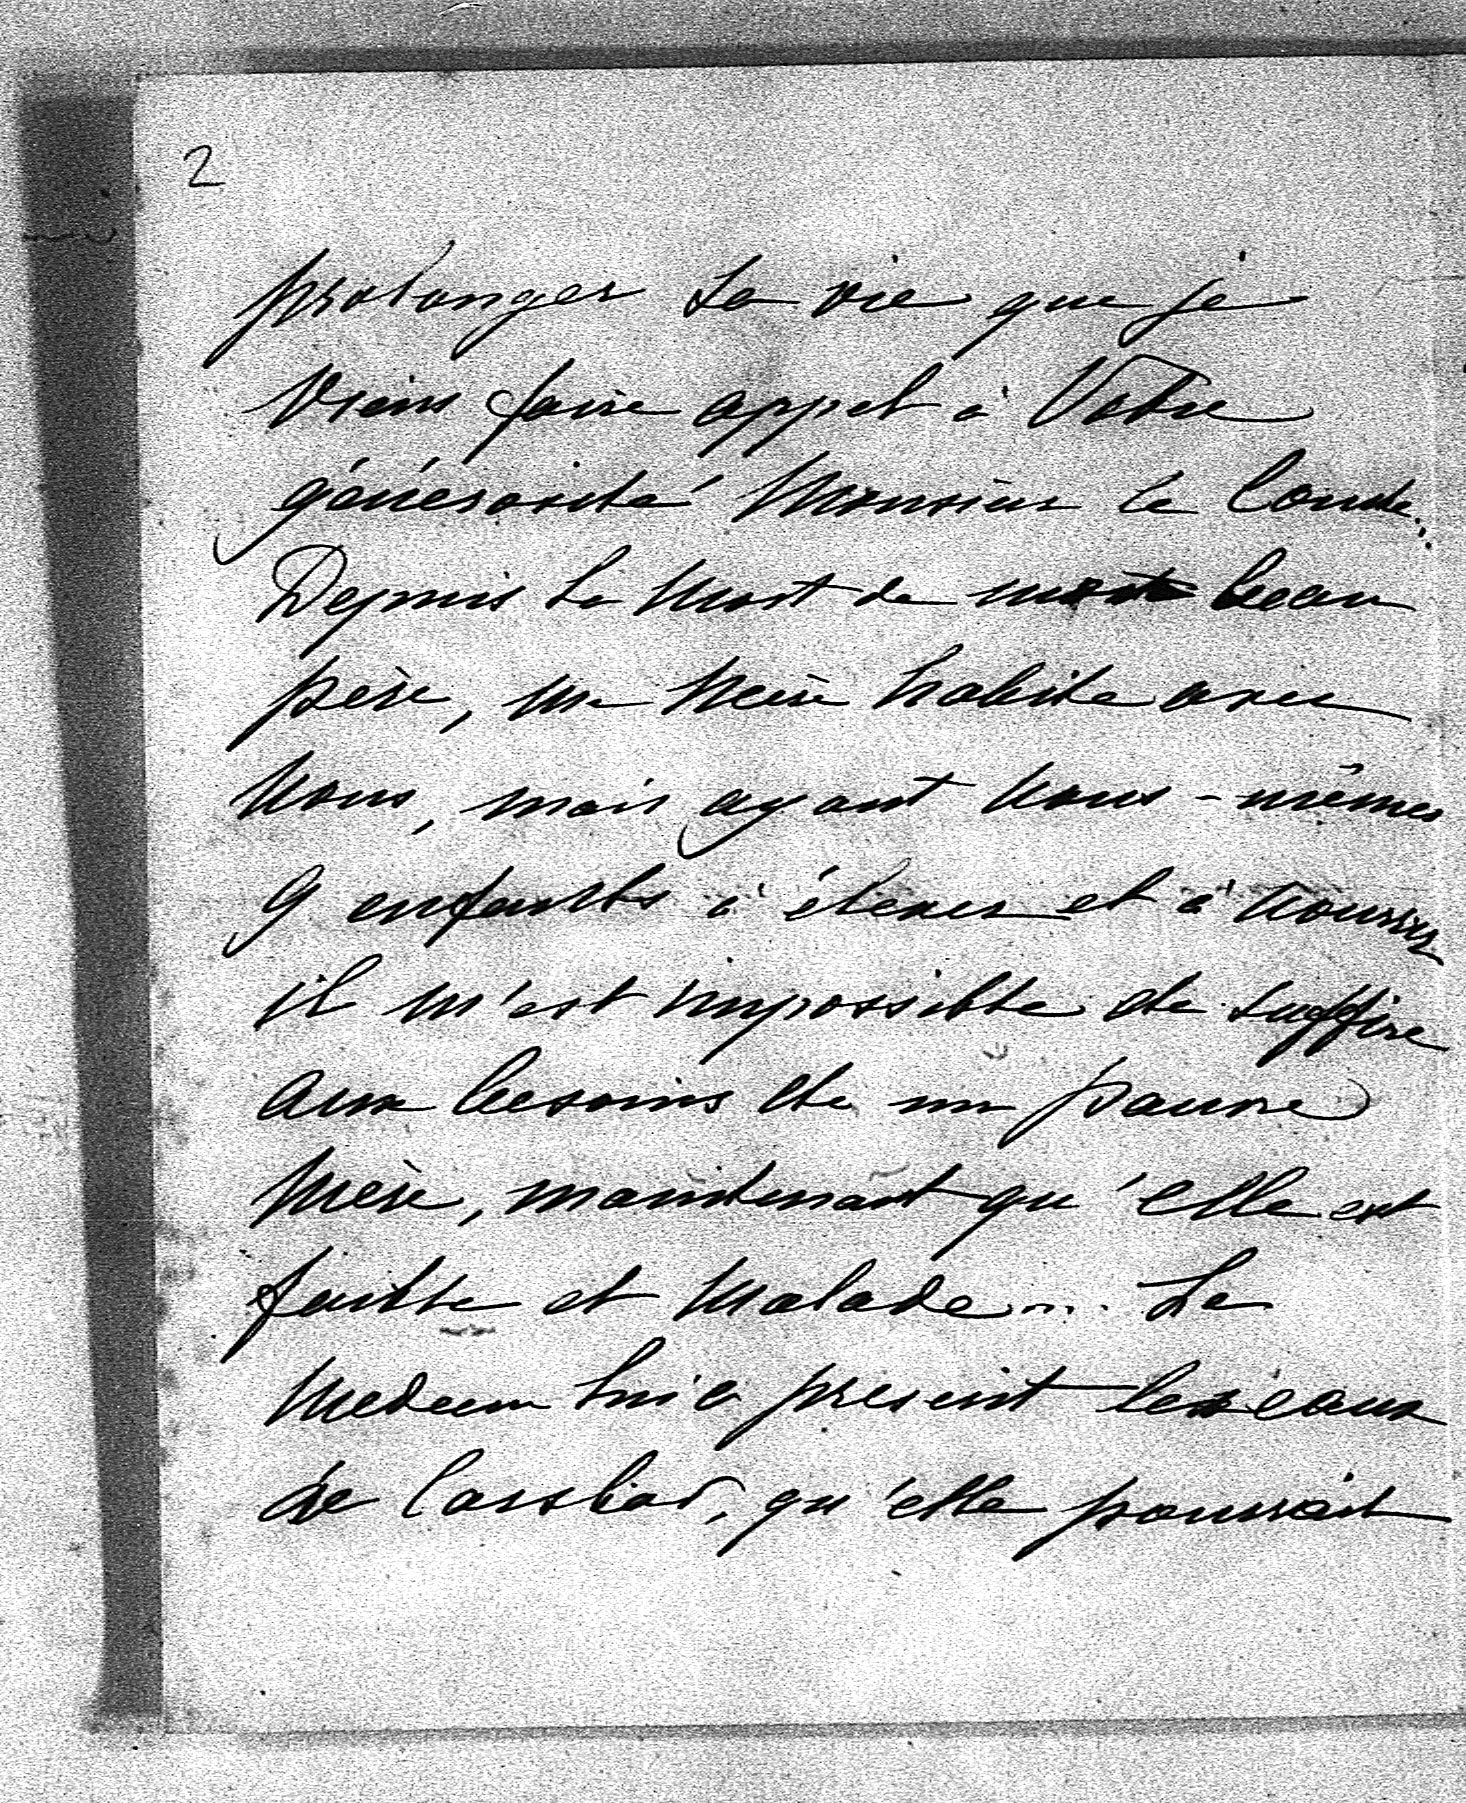 2
prolonger sa vie que je
viens faire appel à Votre
générosité Monsieur le Comte..
Depuis la mort de mon beau
père, ma mère habite avec
nous, mais ayant nous-mêmes
9 enfants à élever et à nourrir
il m'est impossible de suffire
aux besoins de ma pauvre
mère, maintenant qu'elle est
faible et malade.... Le
medecin lui a prescrit les eaux
de Carlsbad, qu'elle pourrait